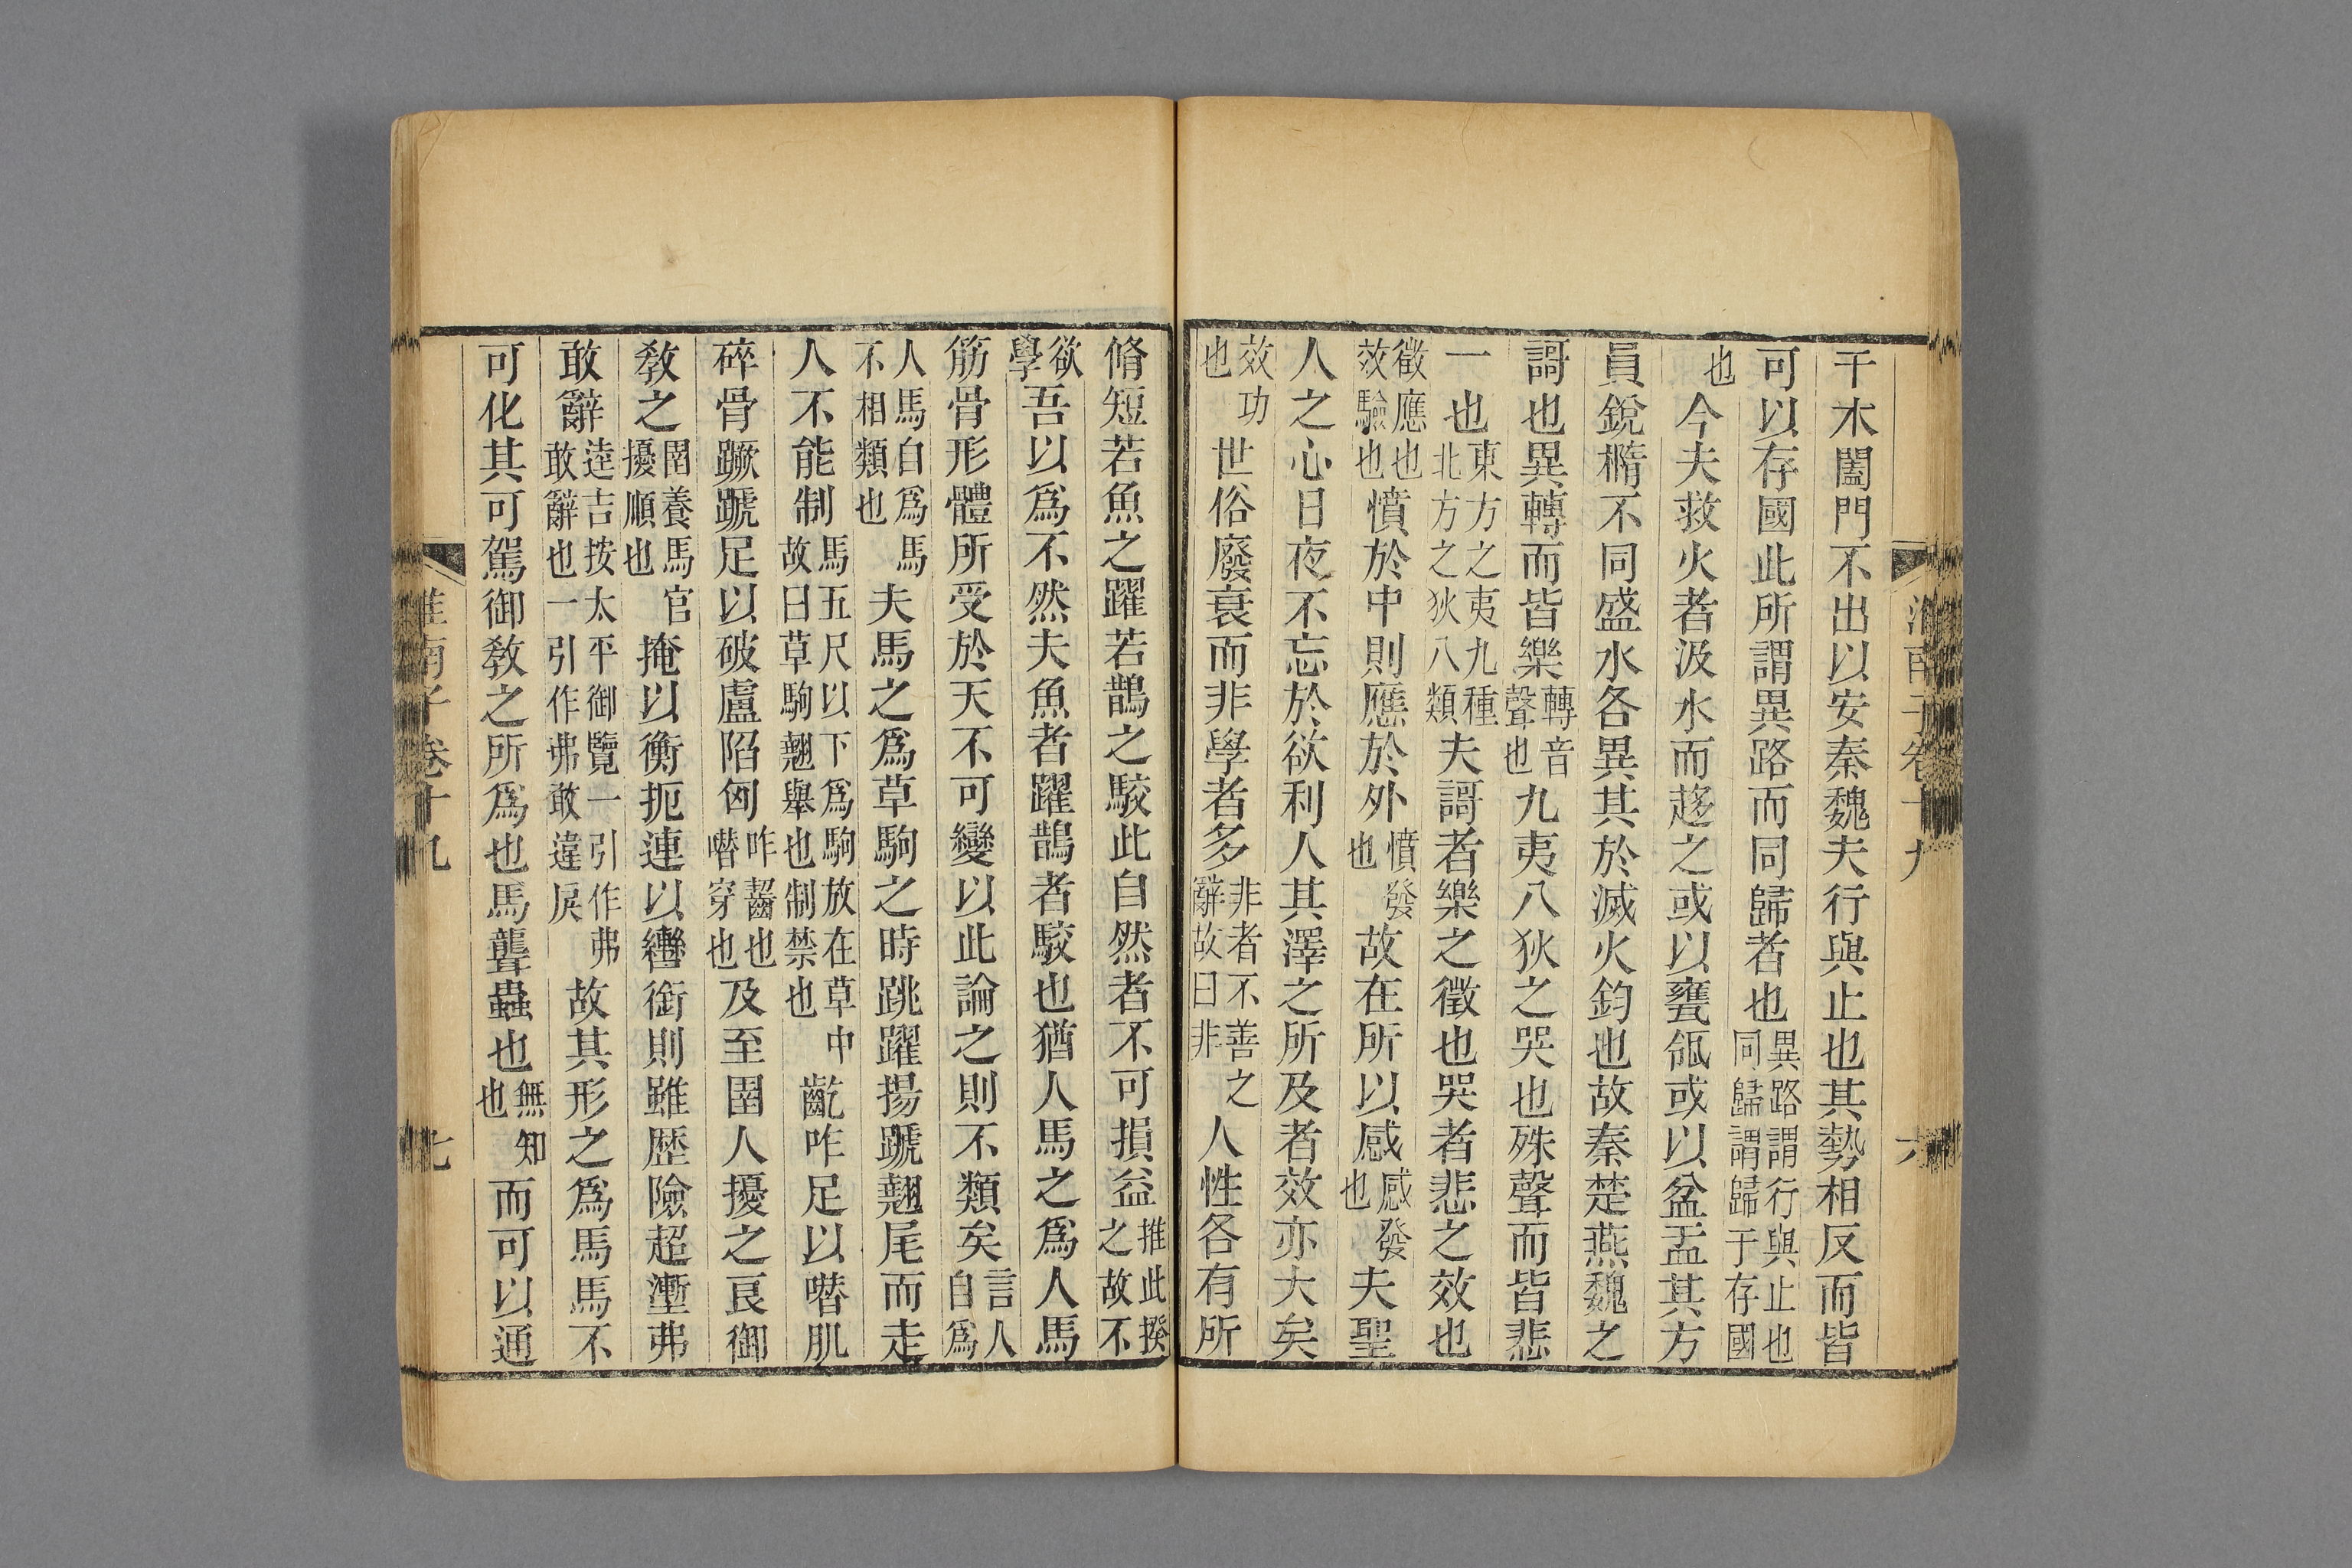 淮南子卷十九 六
干木闔門不出以安秦魏夫行與止也其勢相反而皆
可以存國此所謂異路而同歸者也異路謂行與止也同歸謂歸于存國
也今夫救火者汲水而趍之或以甕瓴或以盆盂其方
員銳橢不同盛水各異其於滅火鈞也故秦楚燕魏之
謌也異轉而皆樂轉音聲也九夷八狄之哭也殊聲而皆悲
一也東方之夷九種北方之狄八類夫謌者樂之徵也哭者悲之效也
徵應也效驗也憤於中則應於外憤發也故在所以感感發也夫聖
人之心日夜不忘於欲利人其澤之所及者效亦大矣
效功也世俗廢衰而非學者多非者不善之辭故曰非人性各有所
脩短若魚之躍若鵲之駮此自然者不可損益推此揆之故不
欲學吾以爲不然夫魚者躍鵲者駮也猶人馬之爲人馬
筋骨形體所受於天不可變以此論之則不類矣言人自爲
人馬自爲馬不相類也夫馬之爲草駒之時跳躍揚蹏翹尾而走
人不能制馬五尺以下爲駒放在草中故曰草駒翹舉也制禁也齕咋足以噆肌
碎骨蹶蹏足以破盧陷匈咋齧也噆穿也及至圉人擾之良御
教之圉養馬官擾順也掩以衡扼連以轡銜則雖歷險超壍弗
敢辭逵吉按太平御覽一引作弗敢辭也一引作弗敢違戾故其形之爲馬馬不
可化其可駕御教之所爲也馬聾蟲也無知也而可以通
淮南子卷十九 七